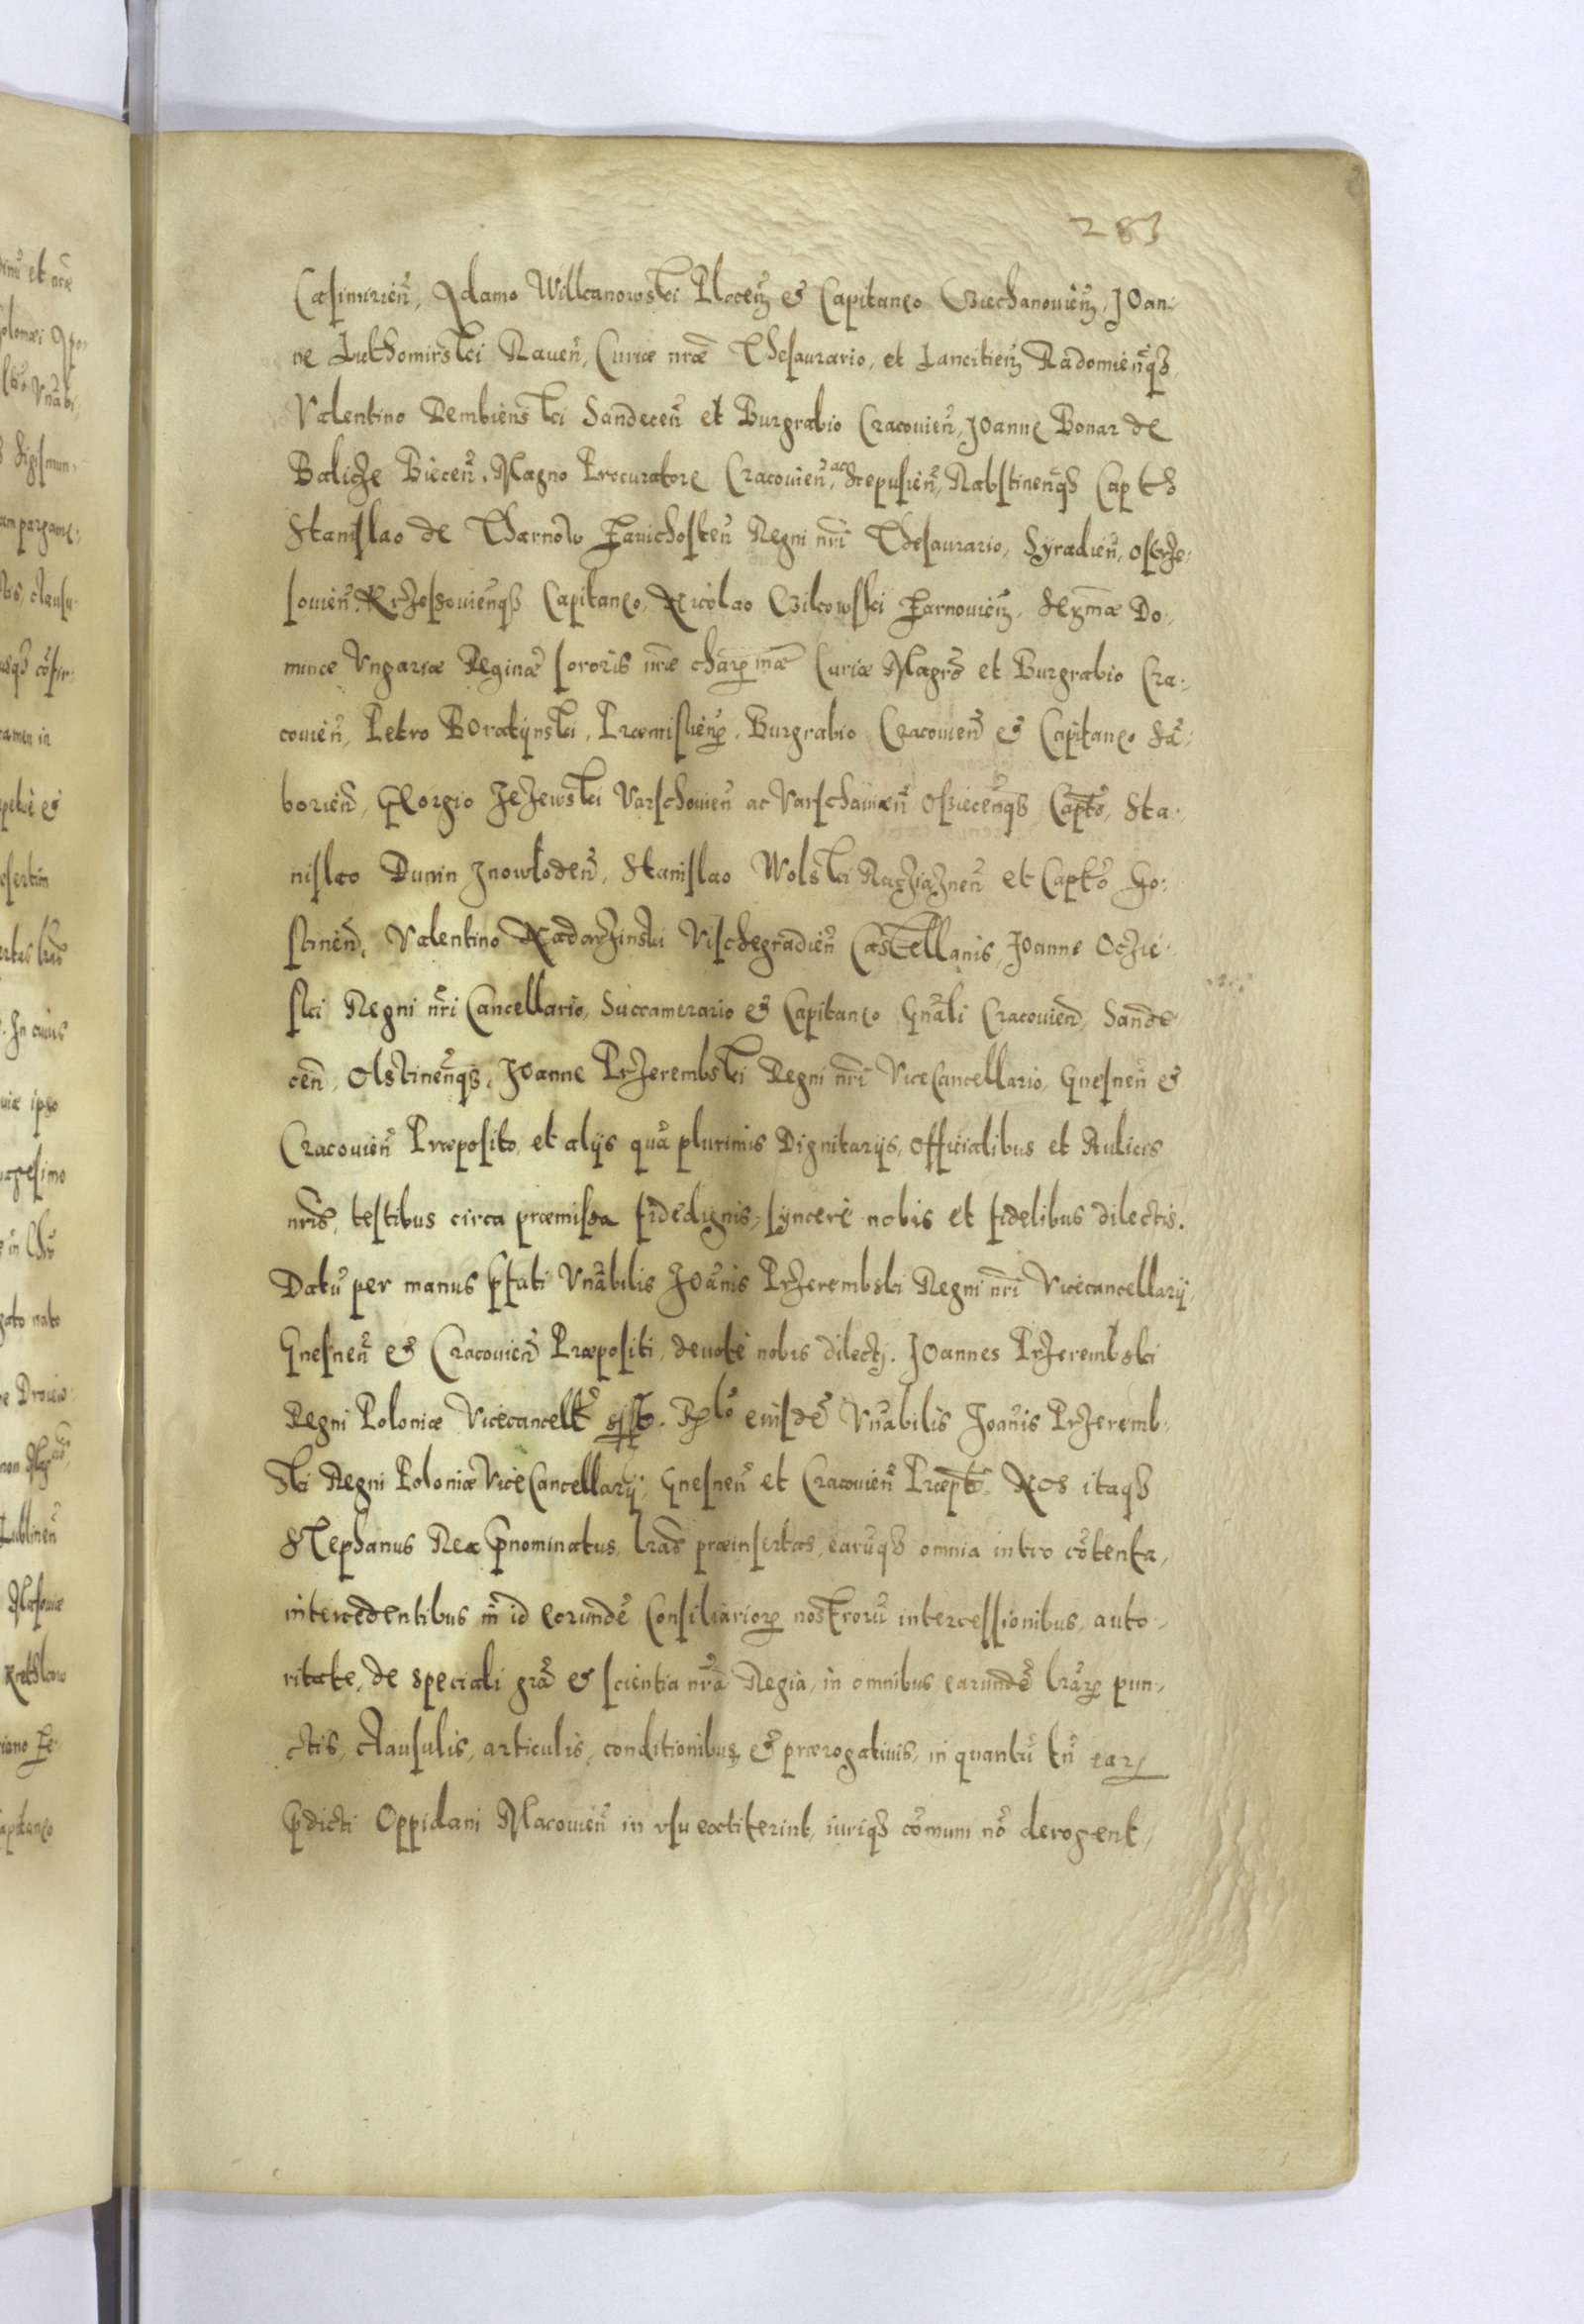 283
Casimirień, Adamo Wilkanowski Plocen̄ & Capitaneo Cziechanovien̄, Joan-
ne Luthomirski Raven̄, Curiæ nr̄æ Thesaurario, et Lancitien̄ Radomien̄qȝ,
Valentino Dembienski Sandecen̄ et Burgrabio Cracovien̄, Joanne Bonar de
Balicze Biecen̄, Magno Procuratore Cracovien̄, ac Scepusien̄, Rabstinen̄qȝ Captō
Stanislao de Tharnow Zavichosten̄ Regni nr̄i Thesaurario, Syradien̄, Ostrze-
sovien̄, Krzessovien̄qȝ Capitaneo, Nicolao Czikowski Zarnovien̄, Seren̄mæ Do-
minæ Vngariæ Reginæ sororis nr̄æ char̄mæ Curiæ Magr̄o et Burgrabio Cra-
covien̄, Petro Boratynski, Præmislien̄, Burgrabio Cracovien̄ & Capitaneo Sā-
borien̄, Georgio Jezewski Varschovien̄ ac Varschavien̄ Osviecen̄qȝ Captō, Sta-
nislao Dunin Inowloden̄, Stanislao Wolski Racziaznen̄ et Captō Go-
stinen̄, Valentino Nadarzinski Vischegradien̄ Castellanis, Joanne Oczie-
ski Regni nr̄i Cancellario, Succamerario & Capitaneo Gn̄ali Cracovien̄, Sande
cen̄, Olstinen̄qȝ, Joanne Przerembski Regni nr̄i ViceCancellario, Gnesnen̄ &
Cracovien̄ Præposito, et alijs quā plurimis Dignitarijs, Officialibus et Aulicis
nr̄is, testibus circa præmissa fidedignis, syncere nobis et fidelibus dilectis.
Datū per manus p̄fati Vn̄abilis Joānis Przerembski Regni nr̄i Vicecancellarij,
Gnesnen̄ & Cracovien̄ Præpositi, devote nobis dilecti. Joannes Przerembski
Regni Poloniæ Vicecancell̄ sspt. R̄elō eiusdē Vn̄abilis Joānis Przeremb-
ski Regni Poloniæ ViceCancellarij, Gnesnen̄ et Cracovien̄ Præpt̄i. Nos itaqȝ
Stephanus Rex p̄nominatus, lr̄as præinsertas, earūqȝ omnia intro cōtenta,
intercedentibus in id eorundē Consiliariorꝝ nostrorū intercessionibus, auto-
ritate, de speciali gr̄a & scientia nr̄a Regia, in omnibus earundē lr̄arꝝ pun-
ctis, clausulis, articulis, conditionibus, & prærogativis, in quantū tn̄ earꝝ
p̄dicti Oppidani Macovien̄ in vsu extiterint, iuriqȝ cōmuni nō derogent,